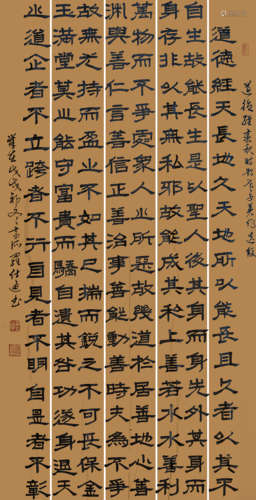 道德經天長地久天地所以能長且久者以其不
自生故能長生是以聖人後其身而身先外其身而
身存非以其無私邪故能成其私上善若水水善利
萬物而不爭處衆人之所惡故幾道於居善地心善
淵與善仁言善信正善治事善能動善時夫唯不爭
故無尤持而盈之不如其已揣而銳之不可長保金
玉滿堂莫之能守富貴而驕自遺其咎功遂身退天
之道企者不立跨者不行自見者不明自是者不彰